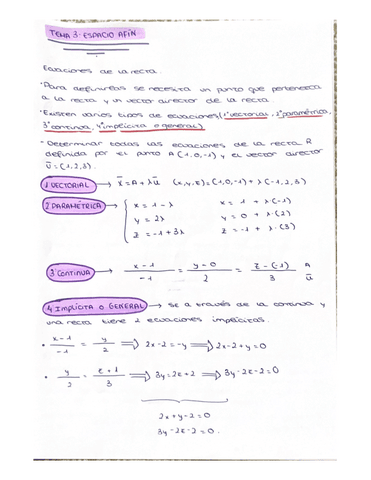 TEMA 3: ESPACIO AFÍN
Ecuaciones de la recta.
· Para definirlas se necesita un punto que pertenezca
a la recta y un vector director de la recta.
· Existen varios tipos de ecuaciones (1ªvectorial, 2ªparamétrica,
3ªcontinua, 4ªimplícita o general)
· Determinar todas las ecuaciones de la recta R
definida por el punto A(1,0,-1) y el vector director
ū=(-1,2,3).
1ª VECTORIAL → x̄ = A + λū (x,y,z) = (1,0,-1) + λ(-1,2,3)
2ª PARAMÉTRICA → { x = 1 - λ   x = 1 + λ·(-1)
y = 2λ   y = 0 + λ·(2)
z = -1 + 3λ   z = -1 + λ·(3)
3ª CONTINUA → (x-1)/-1 = (y-0)/2 = (z-(-1))/3   A ū
4ª IMPLÍCITA O GENERAL → Se a través de la continua y
una recta tiene 2 ecuaciones implícitas.
· (x-1)/-1 = y/2 ⇒ 2x-2=-y ⇒ 2x-2+y=0
· y/2 = (z+1)/3 ⇒ 3y=2z+2 ⇒ 3y-2z-2=0
2x+y-2=0
3y-2z-2=0.